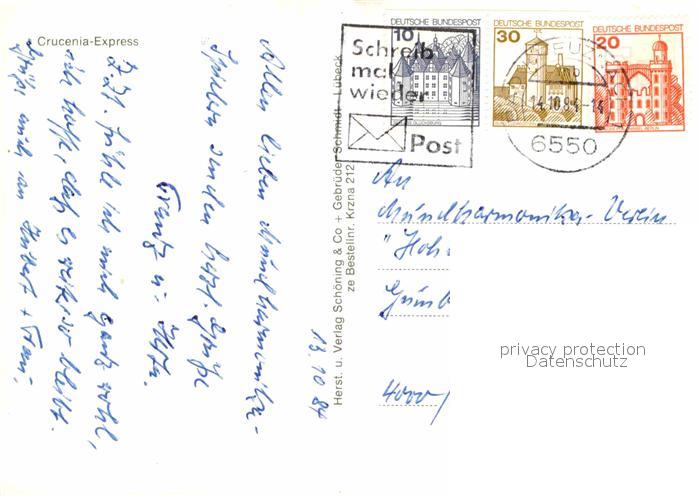 Crucenia-Express
DEUTSCHE BUNDESPOST
10
DEUTSCHE BUNDESPOST
30
DEUTSCHE BUNDESPOST
20
Schreib
mal
wieder
Post
14.10.84-14
6550
13.10.84
Allen lieben Mundharmonika-
Spielern senden herzl. Grüße
u.
Z.Zt. fühle ich mich ganz wohl,
ich hoffe, daß es weiter so bleibt.
Grüßt mich an
Herst. u. Verlag Schöning & Co + Gebrüder Schmidt · Lübeck
ze Bestellnr. Krzna 212
An
Mundharmonika-Verein
"Hoh
4000/
privacy protection
Datenschutz